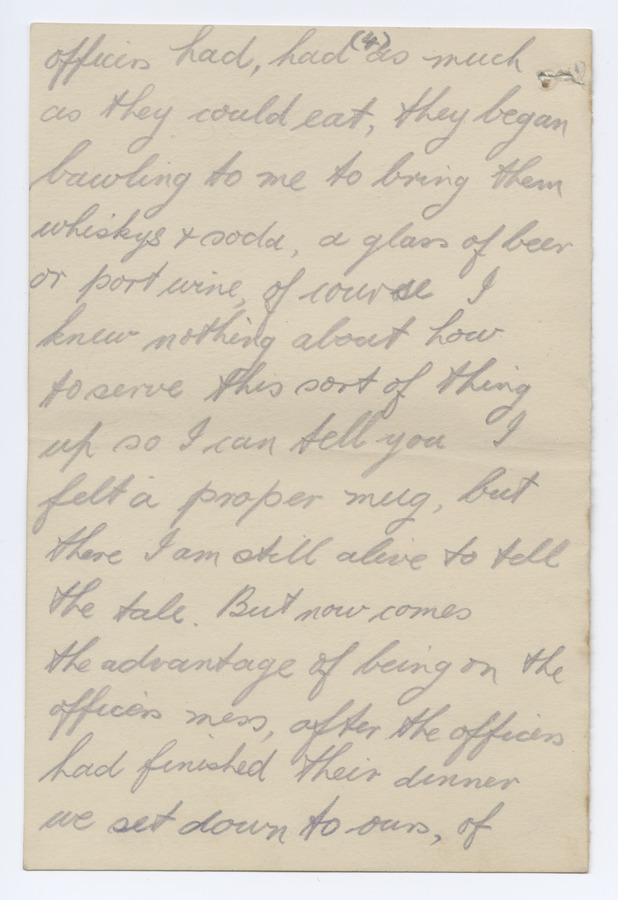 (4)
officers had, had as much
as they could eat, they began
bawling to me to bring them
whiskys & soda, a glass of beer
or port wine, of course I
knew nothing about how
to serve this sort of thing
up so I can tell you I
felt a proper mug, but
there I am still alive to tell
the tale. But now comes
the advantage of being on the
officers mess, after the officers
had finished their dinner
we set down to ours, of